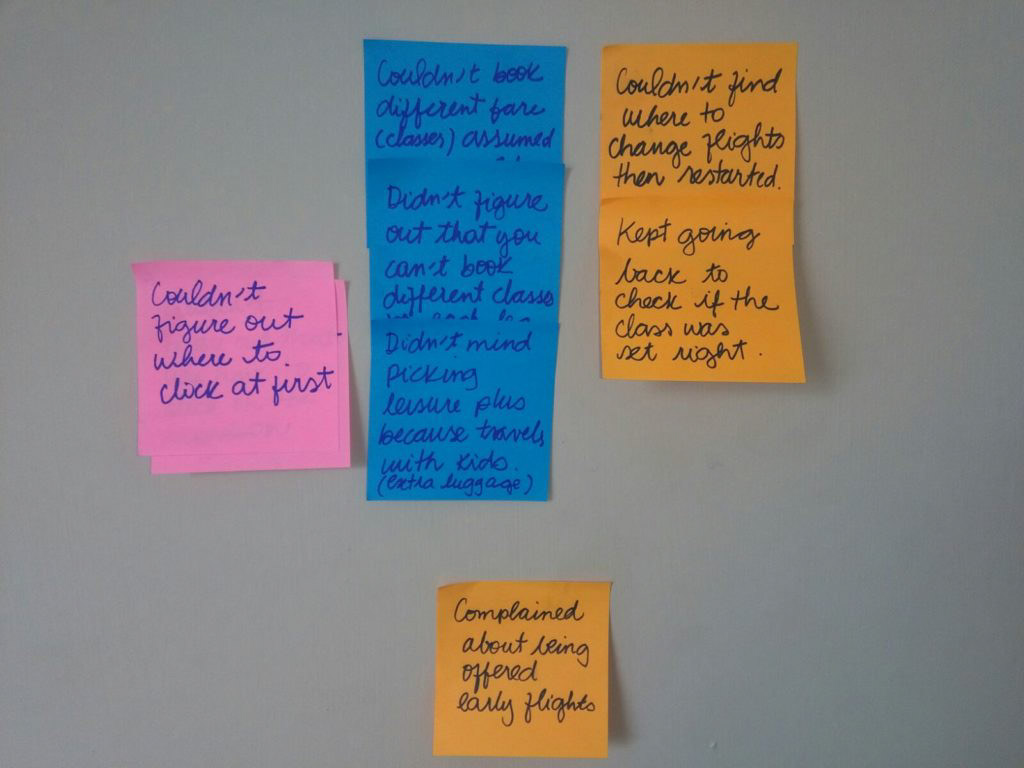 Couldn't
figure out
where to
click at first
Couldn't book
different fare
(classes) assumed
Didn't figure
out that you
can't book
different classes
Didn't mind
picking
leisure plus
because travels
with kids.
(extra luggage)
Couldn't find
where to
change flights
then restarted.
Kept going
back to
check if the
class was
set right.
Complained
about being
offered
early flights